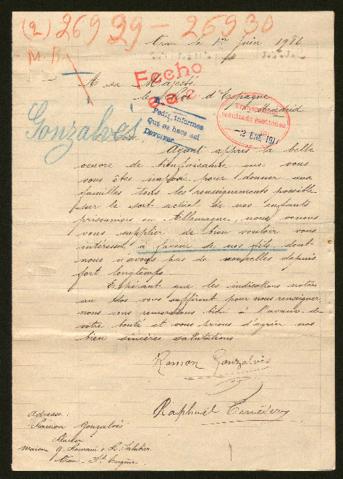 (2) 26929 - 26930
Oran le 1er Juin 191
M.R.
A sa Majesté
le d'Espagne
Madrid
Fecho
Gonzalves
Pedir informes
que se hace así
2 1917
Ayant appris la belle
œuvre de que vous
vous êtes pour donner aux
familles tous les renseignements possible
sur le sort actuel de nos enfants
prisonniers en Allemagne, nous venons
vous supplier de bien vouloir vous
intéresser à faveur de nos fils dont
nous n'avons pas de nouvelles depuis
fort longtemps.
Espérant que les indications notées
au dos vous suffiront pour nous renseigner
nous vous remercions à l'avance de
votre bonté et vous prions d'agréer nos
bien sincères salutations
Ramon Gonzalvès
Raphaël
Adresse:
Ramon Gonzalvès
maison
Oran - St Eugène